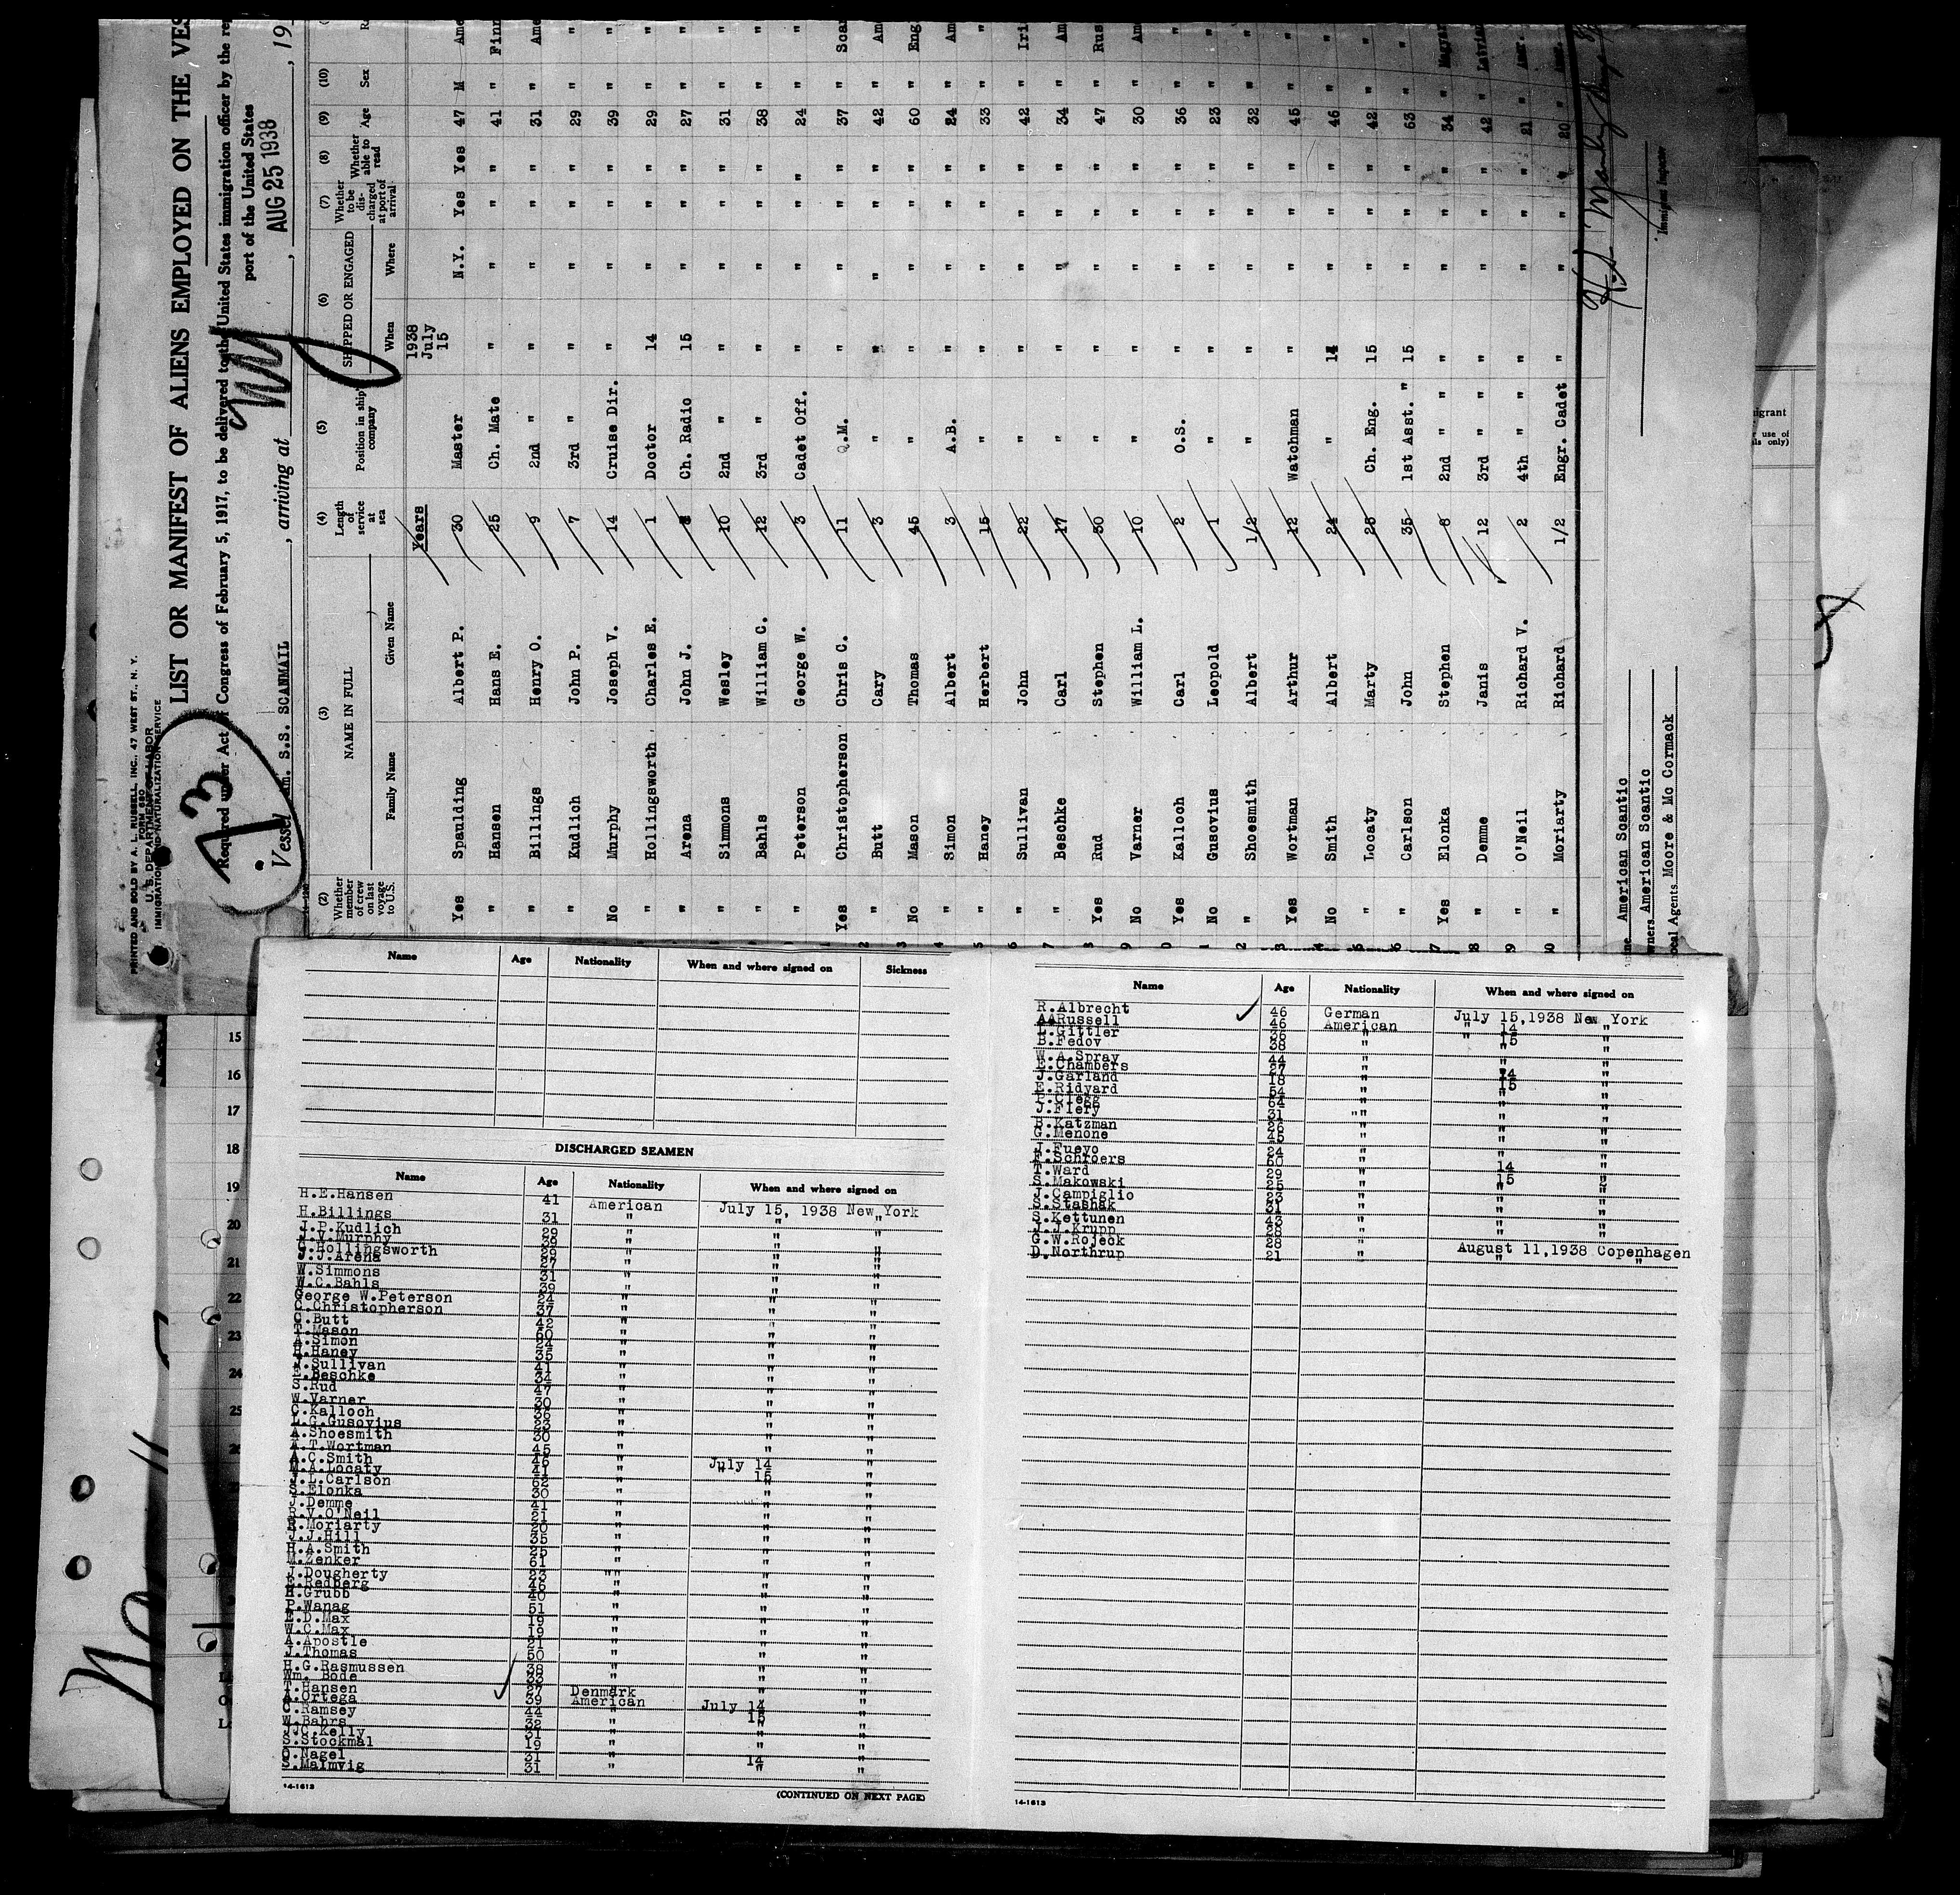 PRINTED AND SOLD BY A. L. RUSSELL, INC., 47 WEST ST., N. Y.
FORM 680
U. S. DEPARTMENT OF LABOR
IMMIGRATION AND NATURALIZATION SERVICE
13
LIST OR MANIFEST OF ALIENS EMPLOYED ON THE VES
Required under Act of Congress of February 5, 1917, to be delivered to the United States immigration officer by the re
port of the United States
Vessel Am. S.S. SCANMAIL, arriving at NY, AUG 25 1938, 19
(2) (3) (4) (5) (6) (7) (8) (9) (10)
Whether member of crew on last voyage to U.S. NAME IN FULL Family Name Given Name Length of service at sea Position in ship's company SHIPPED OR ENGAGED When Where Whether to be discharged at port of arrival Whether able to read Age Sex R
Years 1938 July
Yes Spaulding Albert P. 30 Master 15 N.Y. Yes Yes 47 M Ame
" Hansen Hans E. 25 Ch. Mate " " " " 41 " Finn
" Billings Henry O. 9 2nd " " " " " 31 " Ame
" Kudlich John P. 7 3rd " " " " " 29 " "
No Murphy Joseph V. 14 Cruise Dir. " " " " 39 " "
" Hollingsworth Charles E. 1 Doctor 14 " " " 29 " "
" Arena John J. Ch. Radio 15 " " " 27 " "
" Simmons Wesley 10 2nd " " " " " 31 " "
" Bahls William C. 12 3rd " " " " " 38 " "
" Peterson George W. 3 Cadet Off. " " " " 24 " "
Yes Christopherson Chris C. 11 Q.M. " " " " 37 " Sca
" Butt Cary 3 " " " " " 42 " Am
No Mason Thomas 45 " " " " " 60 " Eng
" Simon Albert 3 A.B. " " " " 24 " Am
" Haney Herbert 15 " " " " " 33 " "
" Sullivan John 22 " " " " " 42 " Iri
" Beschke Carl 17 " " " " " 34 " Am
Yes Rud Stephen 30 " " " " " 47 " Rus
No Varner William L. 10 " " " " " 30 " Am
Yes Kalloch Carl 2 O.S. " " " " 36 " "
No Gusovius Leopold 1 " " " " " 23 " "
" Shoesmith Albert 1/2 " " " " " 32 " "
Yes Wortman Arthur 12 Watchman " " " " 45 " "
No Smith Albert 24 " 14 " " " 46 " "
" Locaty Marty 25 Ch. Eng. 15 " " " 42 " "
" Carlson John 35 1st Asst. " 15 " " " 63 " "
Yes Elonka Stephen 8 2nd " " " " " " 34 " Magyar
" Demme Janis 12 3rd " " " " " " 42 " Latvia
" O'Neil Richard V. 2 4th " " " " " " 21 " Amer.
" Moriarty Richard 1/2 Engr. Cadet " " " " 20 " Ame.
Line American Scantic
Owners American Scantic
Local Agents Moore & Mc Cormack
Immigrant Inspector
Name Age Nationality When and where signed on Sickness
DISCHARGED SEAMEN
Name Age Nationality When and where signed on
H.E.Hansen 41 American July 15, 1938 New York
H.Billings 31 " " "
J.P.Kudlich 29 " " "
J.V.Murphy 39 " " "
C.Hollingsworth 29 " " "
J.J.Arena 27 " " "
W.Simmons 31 " " "
W.C.Bahls 39 " " "
George W.Peterson 24 " " "
C.Christopherson 37 " " "
C.Butt 42 " " "
T.Mason 60 " " "
A.Simon 24 " " "
H.Haney 35 " " "
J.Sullivan 41 " " "
Beschke 34 " " "
S.Rud 47 " " "
W.Varner 30 " " "
C.Kalloch 36 " " "
L.G.Gusovius 23 " " "
A.Shoesmith 30 " " "
A.T.Wortman 45 " " "
A.C.Smith 46 " July 14 "
M.A.Locaty 41 " " 15 "
J.L.Carlson 62 " " "
S.Elonka 30 " " "
J.Demme 41 " " "
R.V.O'Neil 21 " " "
R.Moriarty 20 " " "
J.J.Hill 35 " " "
H.A.Smith 25 " " "
M.Zenker 61 " " "
J.Dougherty 23 " " "
E.Redberg 46 " " "
H.Grubb 40 " " "
P.Wanag 51 " " "
E.D.Max 19 " " "
W.C.Max 19 " " "
A.Apostle 21 " " "
J.Thomas 50 " " "
H.G.Rasmussen 38 " " "
Wm. Bode 33 " " "
T.Hansen 27 Denmark " "
A.Ortega 39 American July 14 "
C.Ramsey 44 " 15 "
W.Bahrs 32 " " "
J.C.Kelly 31 " " "
S.Stockmal 19 " " "
O.Nagel 31 " 14 "
S.Malmvig 31 " " "
14-1613
(CONTINUED ON NEXT PAGE)
Name Age Nationality When and where signed on
R.Albrecht 46 German July 15,1938 New York
AARussell 46 American " 14 "
L.Gittler 36 " " 15 "
B.Fedov 38 " " "
W.A.Spray 44 " " "
E.Chambers 27 " 14 "
J.Garland 18 " 15 "
E.Ridyard 54 " " "
P.Clegg 64 " " "
J.Fiery 31 " " "
B.Katzman 26 " " "
G.Menone 45 " " "
J.Fueyo 24 " " "
F.Schroers 60 " 14 "
T.Ward 29 " 15 "
S.Makowski 25 " " "
J.Campiglio 23 " " "
S.Stashak 31 " " "
S.Kettunen 43 " " "
J.J.Krupp 28 " " "
G.W.Rojeck 28 " August 11,1938 Copenhagen
D.Northrup 21 " " "
14-1613
15
16
17
18
19
20
21
22
23
24
25